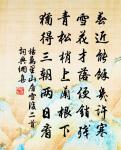 春近能餘幾許寒
雪花才落便銷殘
青松梢上闌根下
獨得三朝兩日看
楊萬里山居雪後二首
詞典網